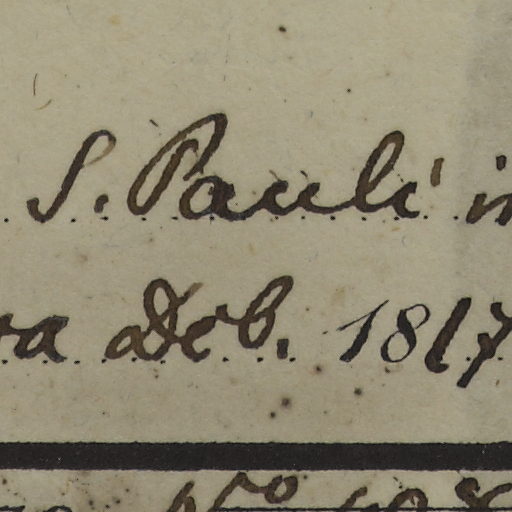 S. Pauli in
va Deb. 1817